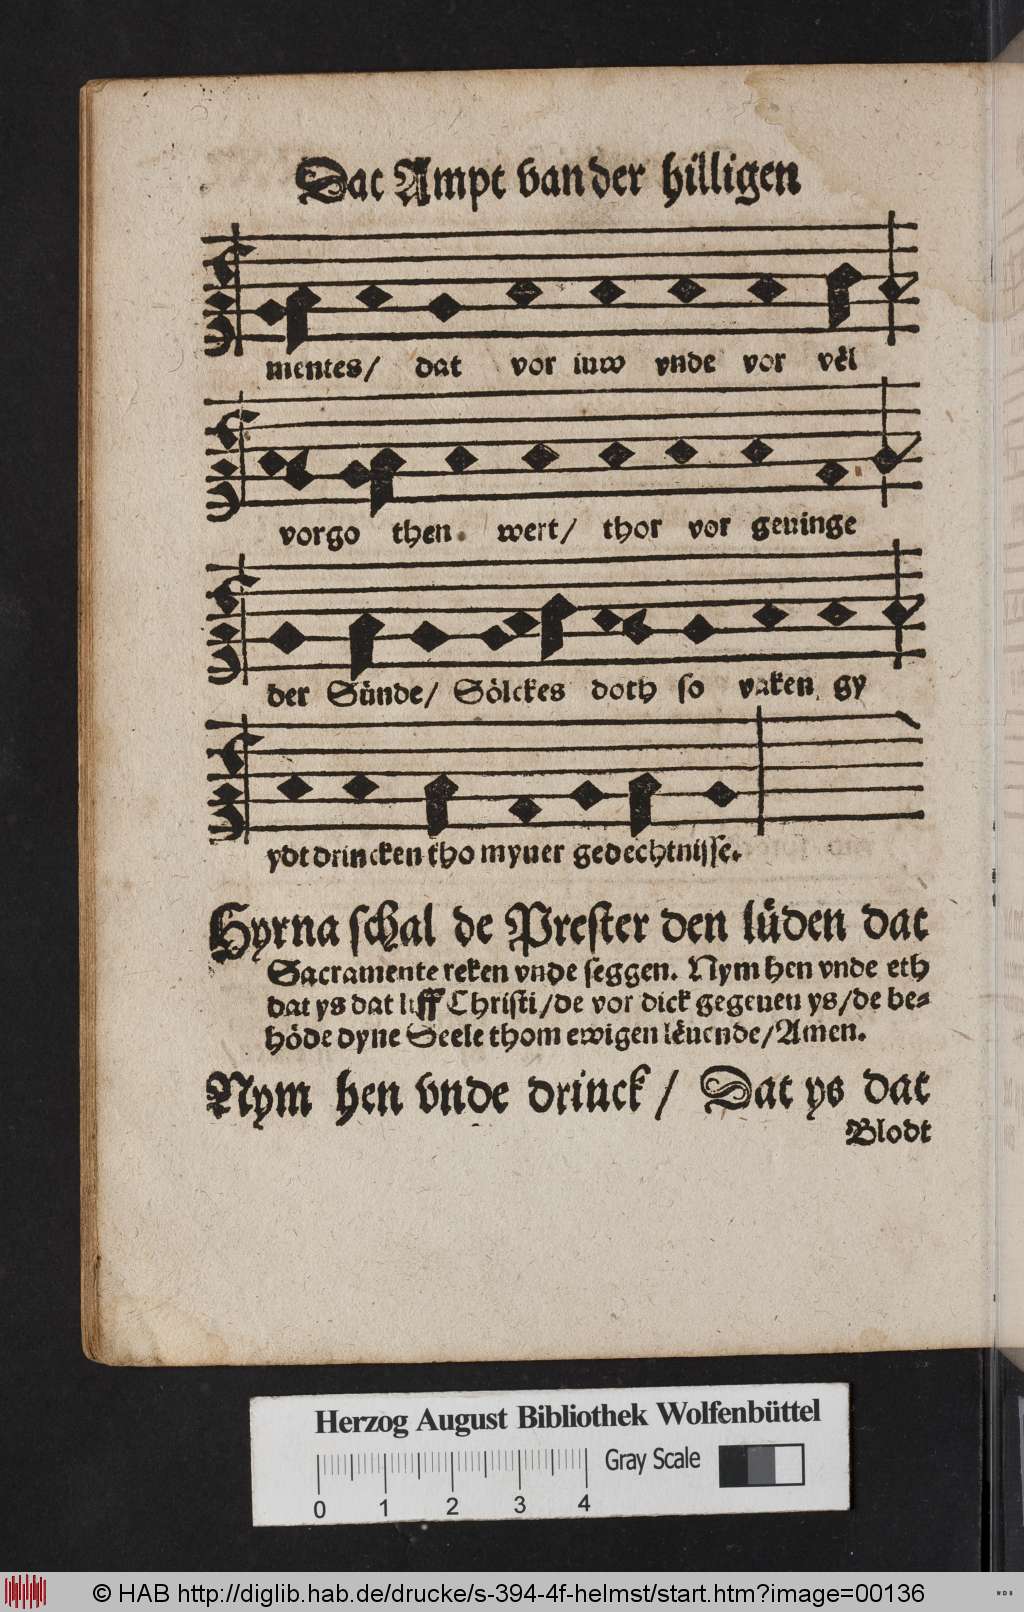 Dat Ampt van der hilligen
mentes/ dat vor iuw vnde vor vël
vorgo then wert/ thor vor geuinge
der Sünde/ Sölckes doth so vaken gy
ydt drincken tho myner gedechtnisse.
Hyrna schal de Prester den lüden dat
Sacramente reken vnde seggen. Nym hen vnde eth
dat ys dat liff Christi/de vor dick gegeuen ys/de be=
höde dyne Seele thom ewigen lëuende/Amen.
Nym hen vnde drinck/ Dat ys dat
Blodt
Herzog August Bibliothek Wolfenbüttel
Gray Scale
0 1 2 3 4
© HAB http://diglib.hab.de/drucke/s-394-4f-helmst/start.htm?image=00136